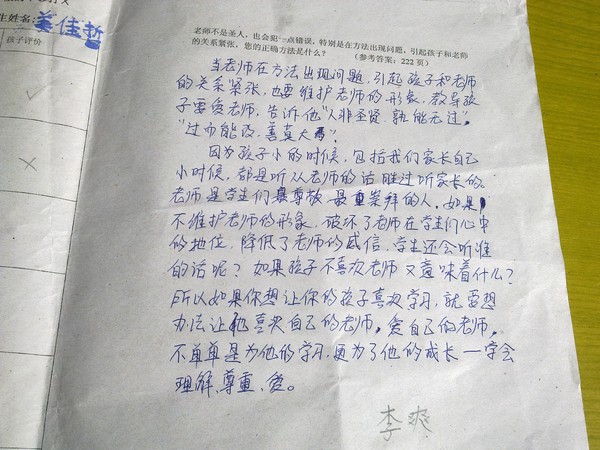 生姓名:姜佳哲
孩子评价
✓
×
老师不是圣人,也会犯一点错误,特别是在方法出现问题,引起孩子和老师
的关系紧张,您的正确方法是什么? (参考答案:222页)
当老师在方法出现问题,引起孩子和老师
的关系紧张,也要维护老师的形象,教导孩
子要爱老师,告诉他“人非圣贤,孰能无过”,
“过而能改,善莫大焉”!
因为孩子小的时候,包括我们家长自己
小时候,都是听从老师的话胜过听家长的.
老师是学生们最尊敬 最重崇拜的人.如果
不维护老师的形象,破坏了老师在学生们心中
的地位,降低了老师的威信,学生还会听谁
的话呢?如果孩子不喜欢老师又意味着什么?
所以如果你想让你的孩子喜欢学习,就要想
办法让他喜欢自己的老师,爱自己的老师,
不单单是为他的学习,更为了他的成长—学会
理解、尊重、爱。
李爽